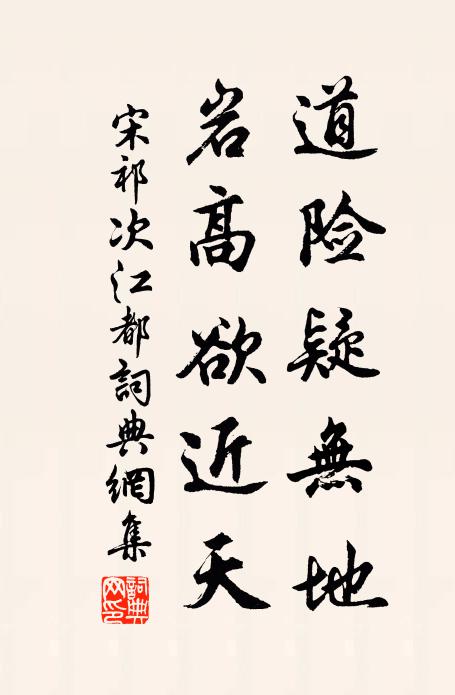 道险疑無地
岩高欲近天
宋祁次江都詞典網集
詞典網印